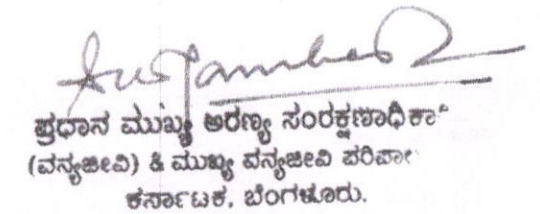 ಪ್ರಧಾನ ಮುಖ್ಯ ಅರಣ್ಯ ಸಂರಕ್ಷಣಾಧಿಕಾ
(ವನ್ಯಜೀವಿ) & ಮುಖ್ಯ ವನ್ಯಜೀವಿ ಪರಿಪಾ
ಕರ್ನಾಟಕ, ಬೆಂಗಳೂರು.